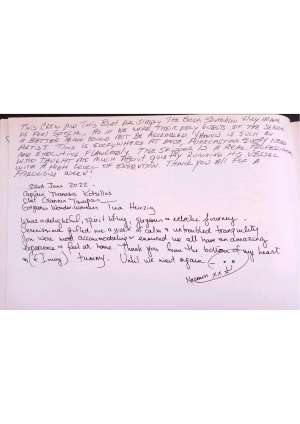 THIS CREW AND THIS BOAT ARE SIMPLY THE BEST. SOMEHOW THEY MADE
US FEEL SPECIAL AS IF WE WERE THEIR ONLY GUESTS OF THE SEASON
A BETTER TEAM COULD NOT BE ASSEMBLED. IS SUCH AN
ARTIST. TINA IS EVERYWHERE AT ONCE, FORECASTING EVERY NEED
AND EXECUTING FLAWLESSLY. THE SKIPPER IS A REAL GENTLEMAN
WHO TAUGHT ME MUCH ABOUT QUIETLY RUNNING HIS VESSEL
WITH A HIGH LEVEL OF EXPECTATION. THANK YOU ALL FOR A
FABULOUS WEEK!
22nd June 2022
Captain Thomas Kotsillas
Chef
Gorgeous Wonder-woman Tina Herzig
What a delightful, spirit lifting, gorgeous & eclectic journey.
gifted me a week of calm & untroubled tranquility.
You were most accommodating & ensured we all have an amazing
experience & feel at home. Thank you from the bottom of my heart
& ( my) tummy. Until we meet again
Maureen xx